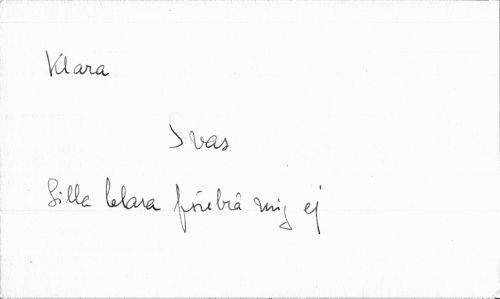 Klara
Svar
Lilla Klara förebrå mig ej